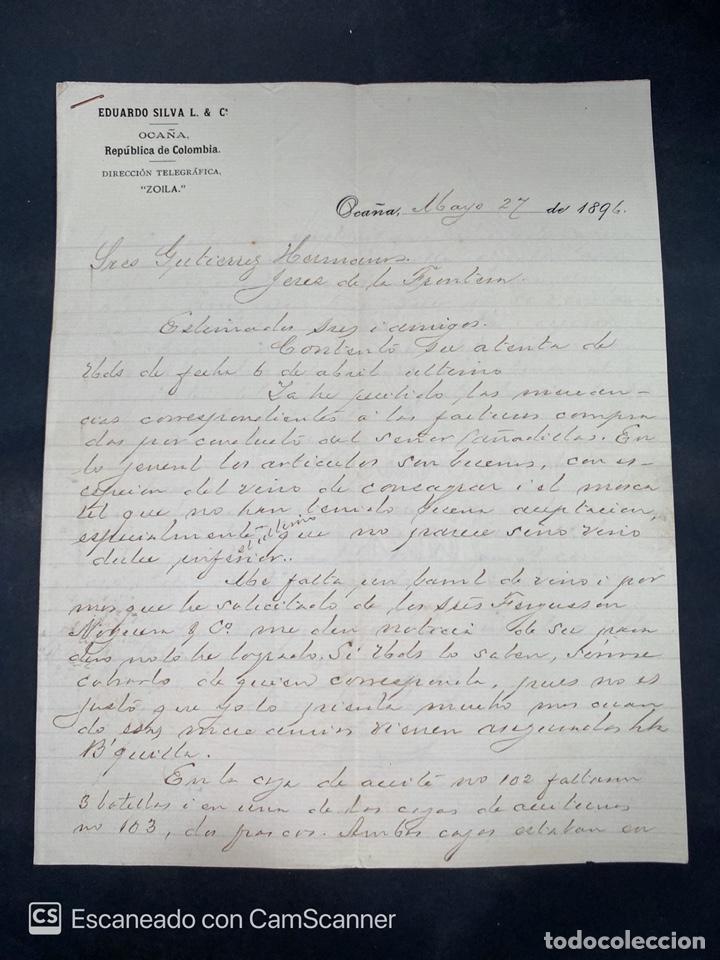 EDUARDO SILVA L. & Cª
OCAÑA,
República de Colombia.
DIRECCIÓN TELEGRÁFICA,
"ZOILA."
Ocaña, Mayo 27 de 1896.
Sres Gutierrez Hermanos.
Jerez de la Frontera.
Estimados Sres i amigos.
Contestó su atenta de
Uds de fecha 6 de abril ultimo
Ya he recibido las mercan-
cias correspondientes á las facturas compra
das por conducto del señor Cañadillas. En
lo jeneral los articulos son buenos, con es-
cepcion del vino de consagrar i el mosca
tel que no han tenido buena aceptacion,
especialmente el ultimo que no parece sino vino
dulce inferior..
Me falta un barril de vino i por
mas que he solicitado de los Sres Fergusson
Noguera & Cº. me den noticia de su para
dero no lo he logrado. Si Uds lo saben, sirvase
cobrarlo de quien corresponda, pues no es
justo que yo lo pierda mucho mas cuan
do esas mercancias vienen aseguradas hta
B quilla.
En la caja de aceite no 102 faltaron
3 botellas i en una de las cajas de aceitunas
no 103, dos frascos. Ambas cajas estaban en
CS Escaneado con CamScanner
todocoleccion